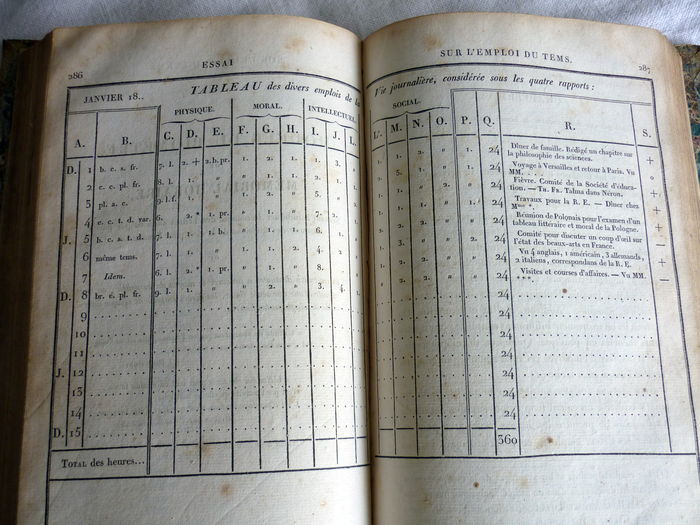 286
ESSAI
TABLEAU des divers emplois de la
JANVIER 18..
PHYSIQUE. MORAL. INTELLECTUEL
A. B. C. D. E. F. G. H. I. J. L.
D. 1 b. c. s. fr. 7. l. 2. + 2. b. pr.
2 c. c. pl. fr. 8. l.
3 pl. a. c. 9. l. f.
4 c. c. t. d. var. 6. 2. * 1. pr.
J. 5 b. c. a. t. d. 7. l. 1. 1. b.
6 même tems. 7. l.
7 Idem. 6. l. 2. * 1. pr.
D. 8 br. é. pl. fr. 9. l.
9
10
11
J. 12
13
14
D. 15
TOTAL des heures...
SUR L'EMPLOI DU TEMS.
287
Vie journalière, considérée sous les quatre rapports :
SOCIAL.
L'. M. N. O. P. Q. R. S.
24 Dîner de famille. Rédigé un chapitre sur
la philosophie des sciences. +
24 Voyage à Versailles et retour à Paris. Vu
MM. . . .
24 Fièvre. Comité de la Société d'éduca-
tion. — TH. FR. Talma dans Néron. +
24 Travaux pour la R. E. — Dîner chez
24 Réunion de Polonais pour l'examen d'un
tableau littéraire et moral de la Pologne.
24 Comité pour discuter un coup d'œil sur
l'état des beaux-arts en France.
24 Vu 4 anglais, 1 américain, 3 allemands,
2 italiens, correspondans de la R. E.
24 Visites et courses d'affaires. — Vu MM.
***
24
24
24
24
24
24
24
360